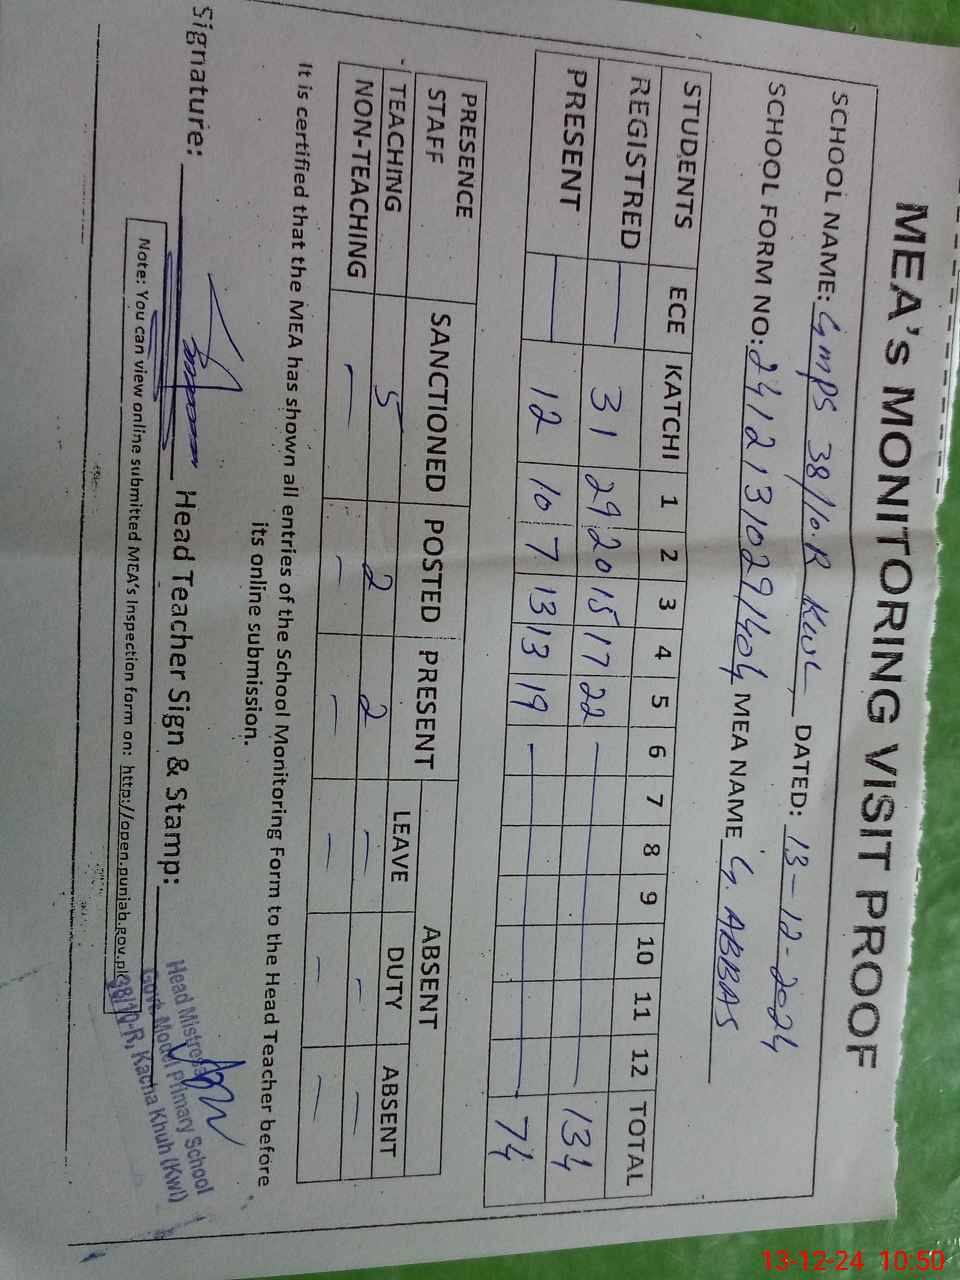 MEA's MONITORING VISIT PROOF
SCHOOL NAME: GMPS 38/10-R KWL DATED: 13-12-2024
SCHOOL FORM NO: 24121310291404 MEA NAME G. ABBAS
STUDENTS ECE KATCHI 1 2 3 4 5 6 7 8 9 10 11 12 TOTAL
REGISTRED — 31 29 20 15 17 22 — 134
PRESENT — 12 10 7 13 13 19 — 74
PRESENCE STAFF SANCTIONED POSTED PRESENT ABSENT
LEAVE DUTY ABSENT
TEACHING 5 2 2 — — —
NON-TEACHING — — — — — —
It is certified that the MEA has shown all entries of the School Monitoring Form to the Head Teacher before
its online submission.
Signature: Head Teacher Sign & Stamp:
Head Mistress
Govt. Model Primary School
38/10-R, Kacha Khuh (Kwl)
Note: You can view online submitted MEA's Inspection form on: http://open.punjab.gov.pk
13-12-24 10:50